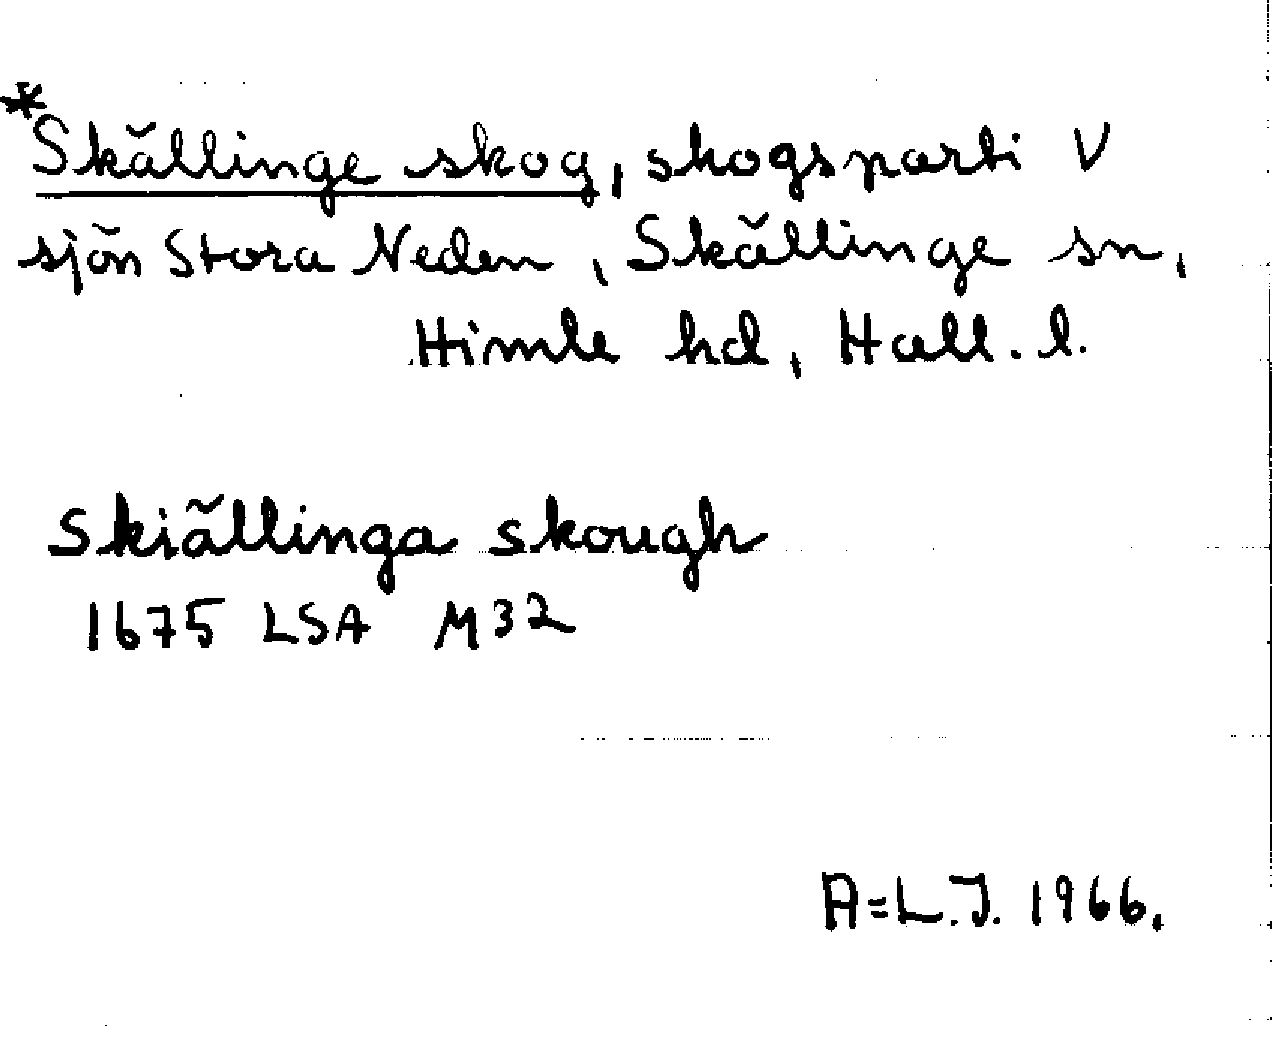 *Skällinge skog, skogsparti V
sjön Stora Neden, Skällinge sn,
Himle hd, Hall. l.
Skiällinga skough
1675 LSA M32
A=L.J. 1966.